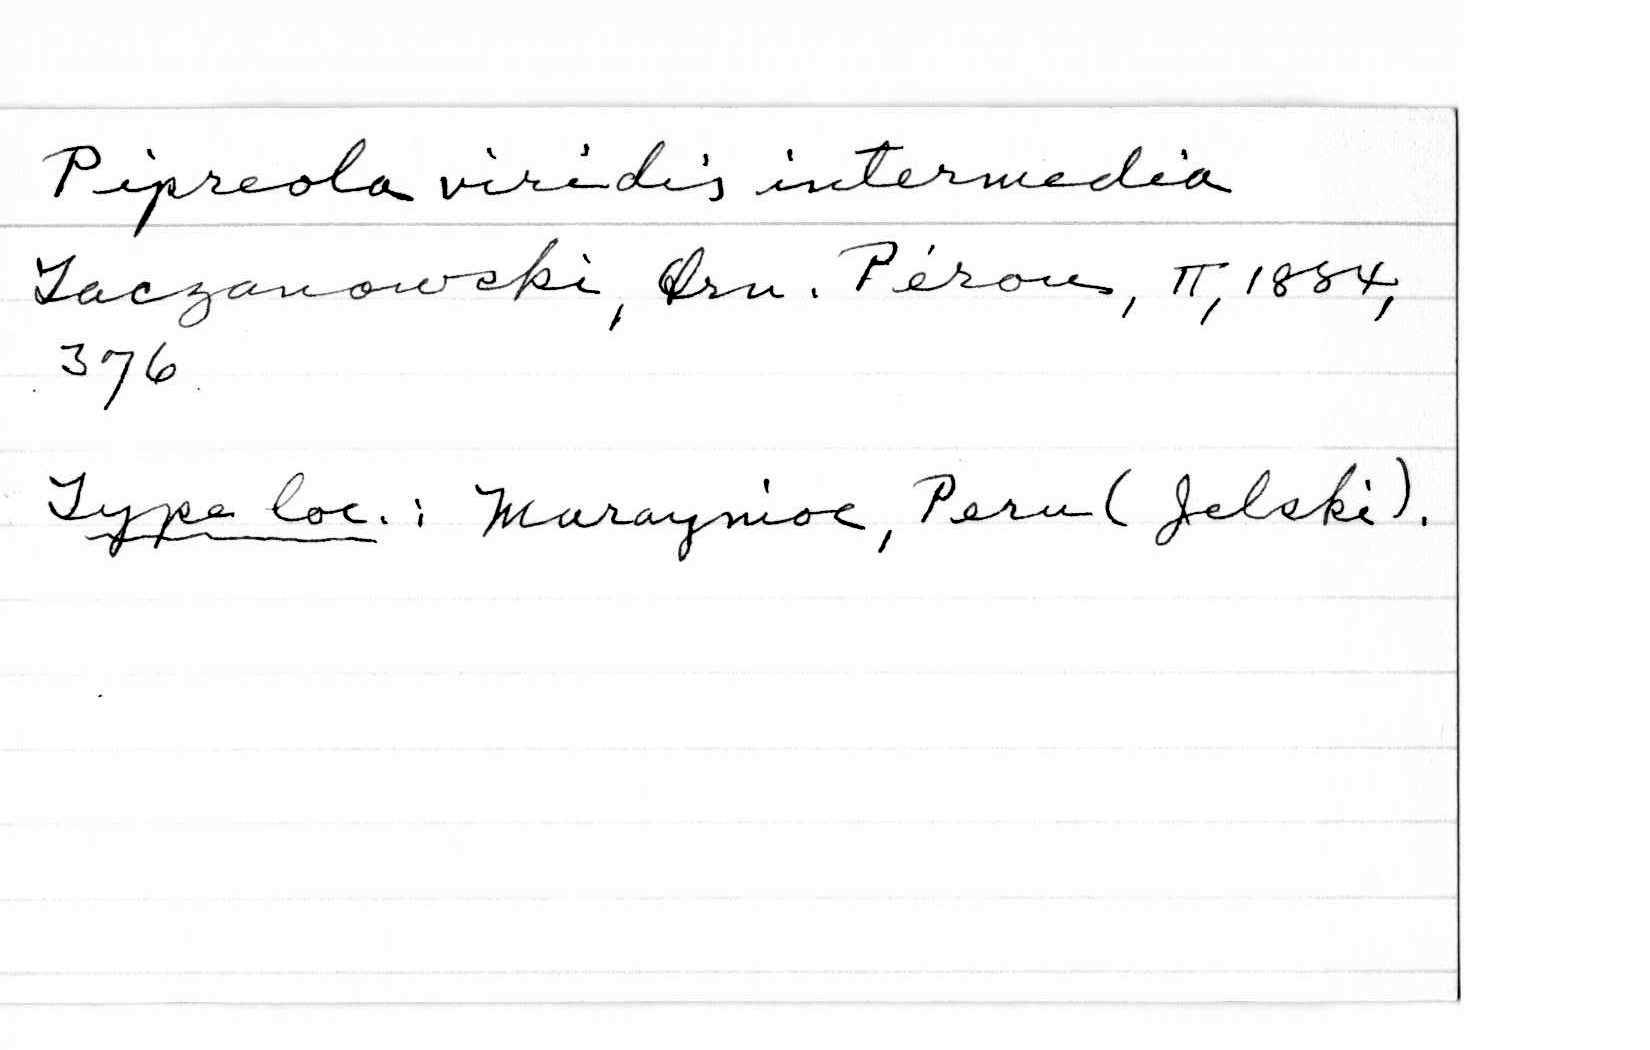 Pipreola viridis intermedia
Taczanowski, Orn. Pérou, II, 1884,
376
Type loc.: Maraynioc, Peru (Jelski).